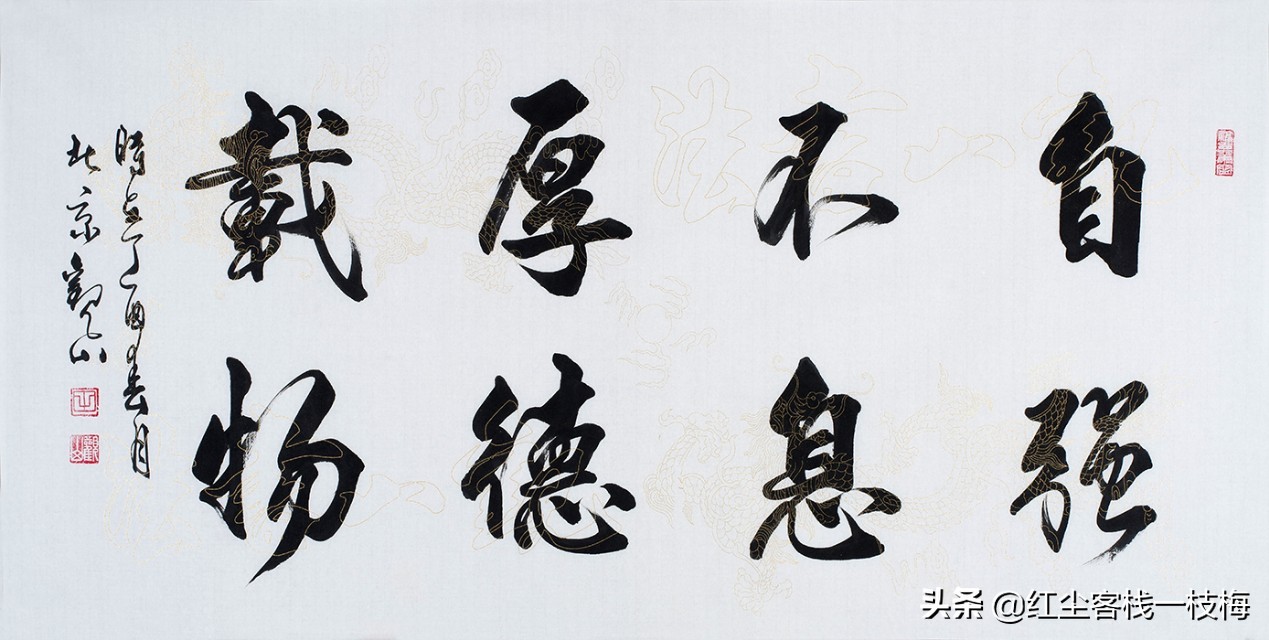 自强
不息
厚德
載物
時在丁酉春月
北京觀山
头条 @红尘客栈一枝梅